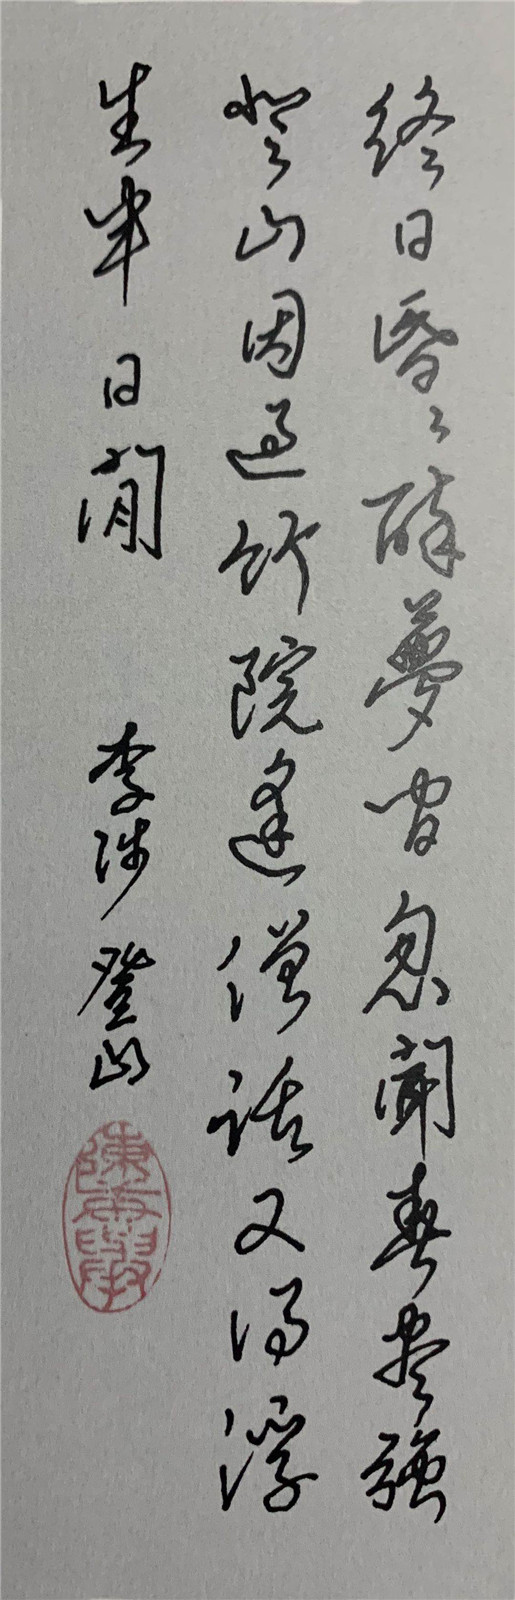 終日昏〻醉夢間忽聞春盡強
登山因過竹院逢僧話又得浮
生半日閒
李涉登山